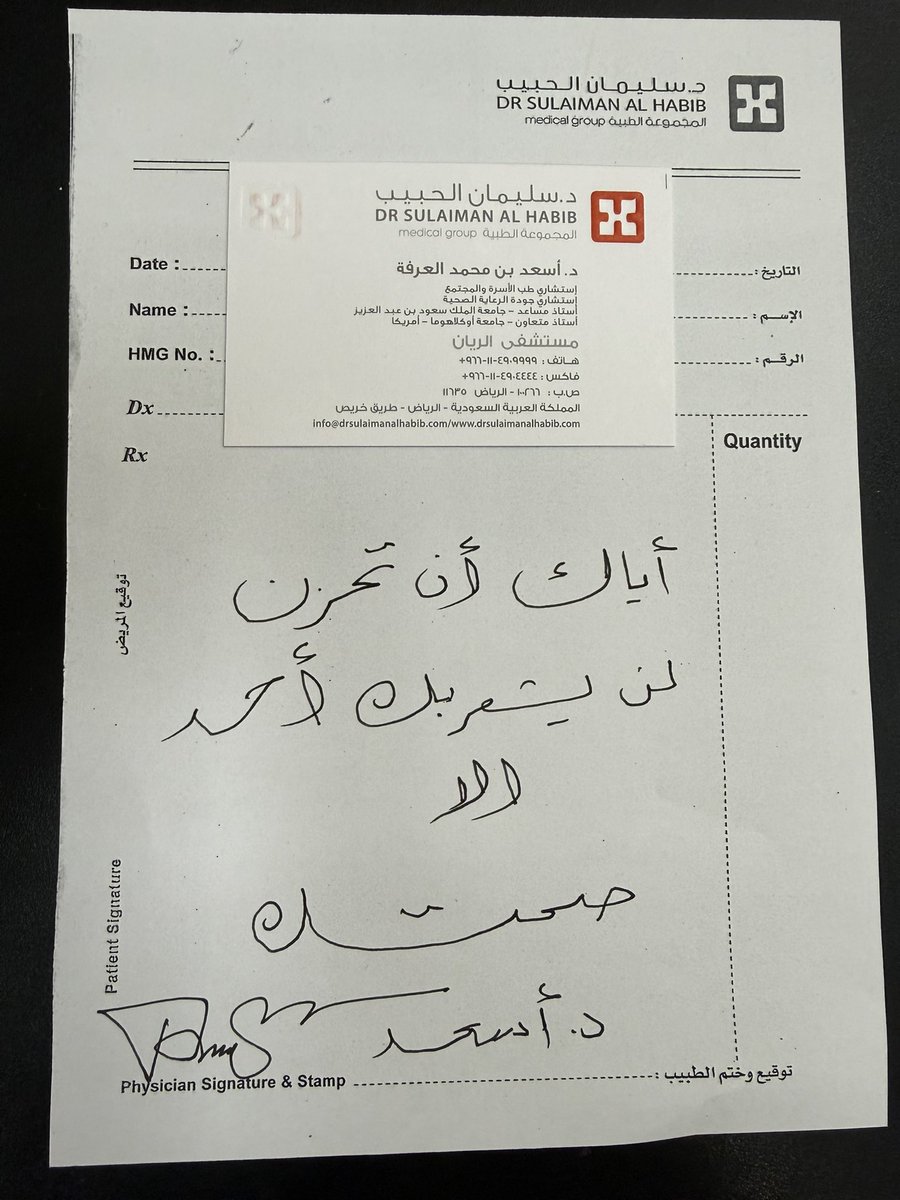 د.سليمان الحبيب
DR SULAIMAN AL HABIB
medical group المجموعة الطبية
د.سليمان الحبيب
DR SULAIMAN AL HABIB
medical group المجموعة الطبية
د. أسعد بن محمد العرفة
إستشاري طب الأسرة والمجتمع
إستشاري جودة الرعاية الصحية
أستاذ مساعد – جامعة الملك سعود بن عبد العزيز
أستاذ متعاون – جامعة أوكلاهوما – أمريكا
مستشفى الريان
هاتف : ٤٩٠٩٩٩٩-١١-٩٦٦+
فاكس : ٤٩٠٤٤٤٤-١١-٩٦٦+
ص.ب : ١٠٠٢٦٦ - الرياض ١١٦٣٥
المملكة العربية السعودية - الرياض - طريق خريص
info@drsulaimanalhabib.com/www.drsulaimanalhabib.com
Date : التاريخ :
Name : الإسم :
HMG No. : الرقم :
Dx
Rx
Quantity
أياك أن تحزن
لن يشعر بك أحد
الا
صحتك
د. أسعد
توقيع المريض
Patient Signature
Physician Signature & Stamp توقيع وختم الطبيب :